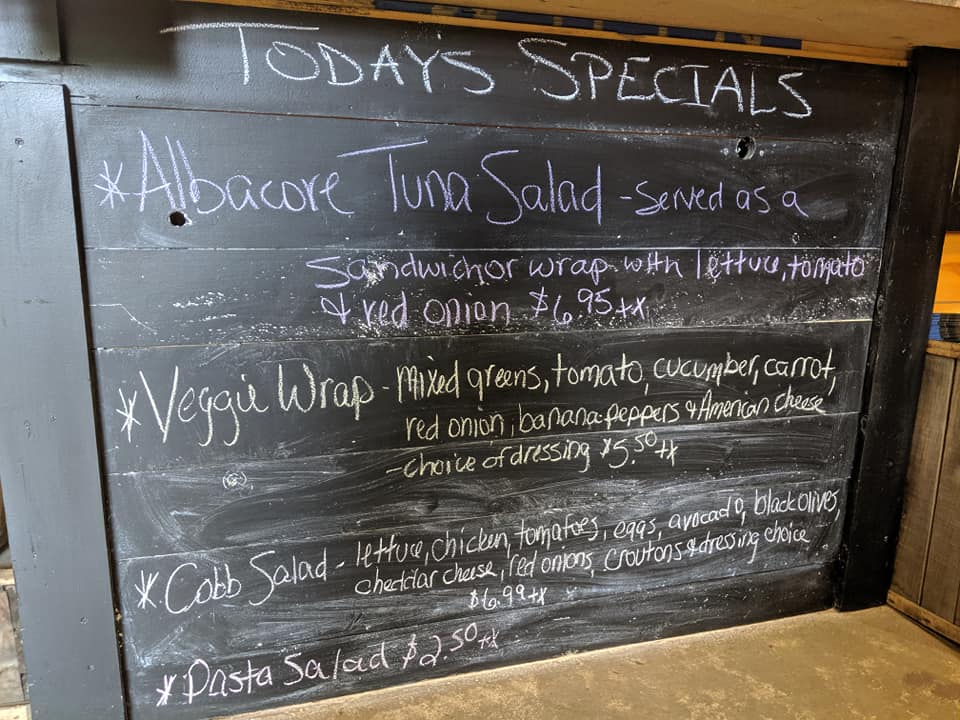 TODAY'S SPECIALS
*Albacore Tuna Salad - Served as a
Sandwich or wrap with lettuce, tomato
& red onion $6.95+x
*Veggie Wrap - Mixed greens, tomato, cucumber, carrot,
red onion, banana peppers & American cheese
-choice of dressing $5.50+x
*Cobb Salad - lettuce, chicken, tomatoes, eggs, avocado, black olives,
cheddar cheese, red onions, croutons & dressing choice
$6.99+x
*Pasta Salad $2.50+x